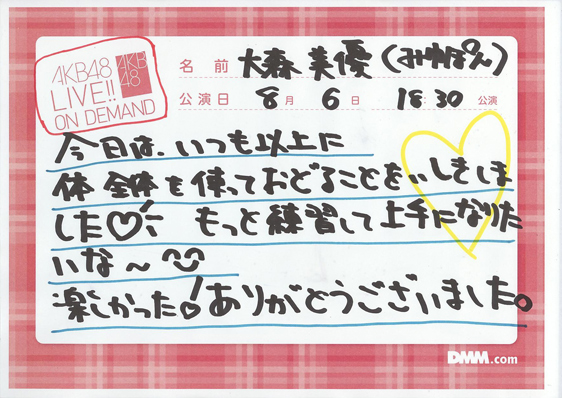 AKB48
LIVE!!
ON DEMAND
AKB
48
名前 大森美優(みゆぽん)
公演日 8月 6日 18:30 公演
今日は、いつも以上に
体全体を使っておどることをいしきしま
した♡! もっと練習して上手になりた
いな〜
楽しかった!ありがとうございました。
DMM.com